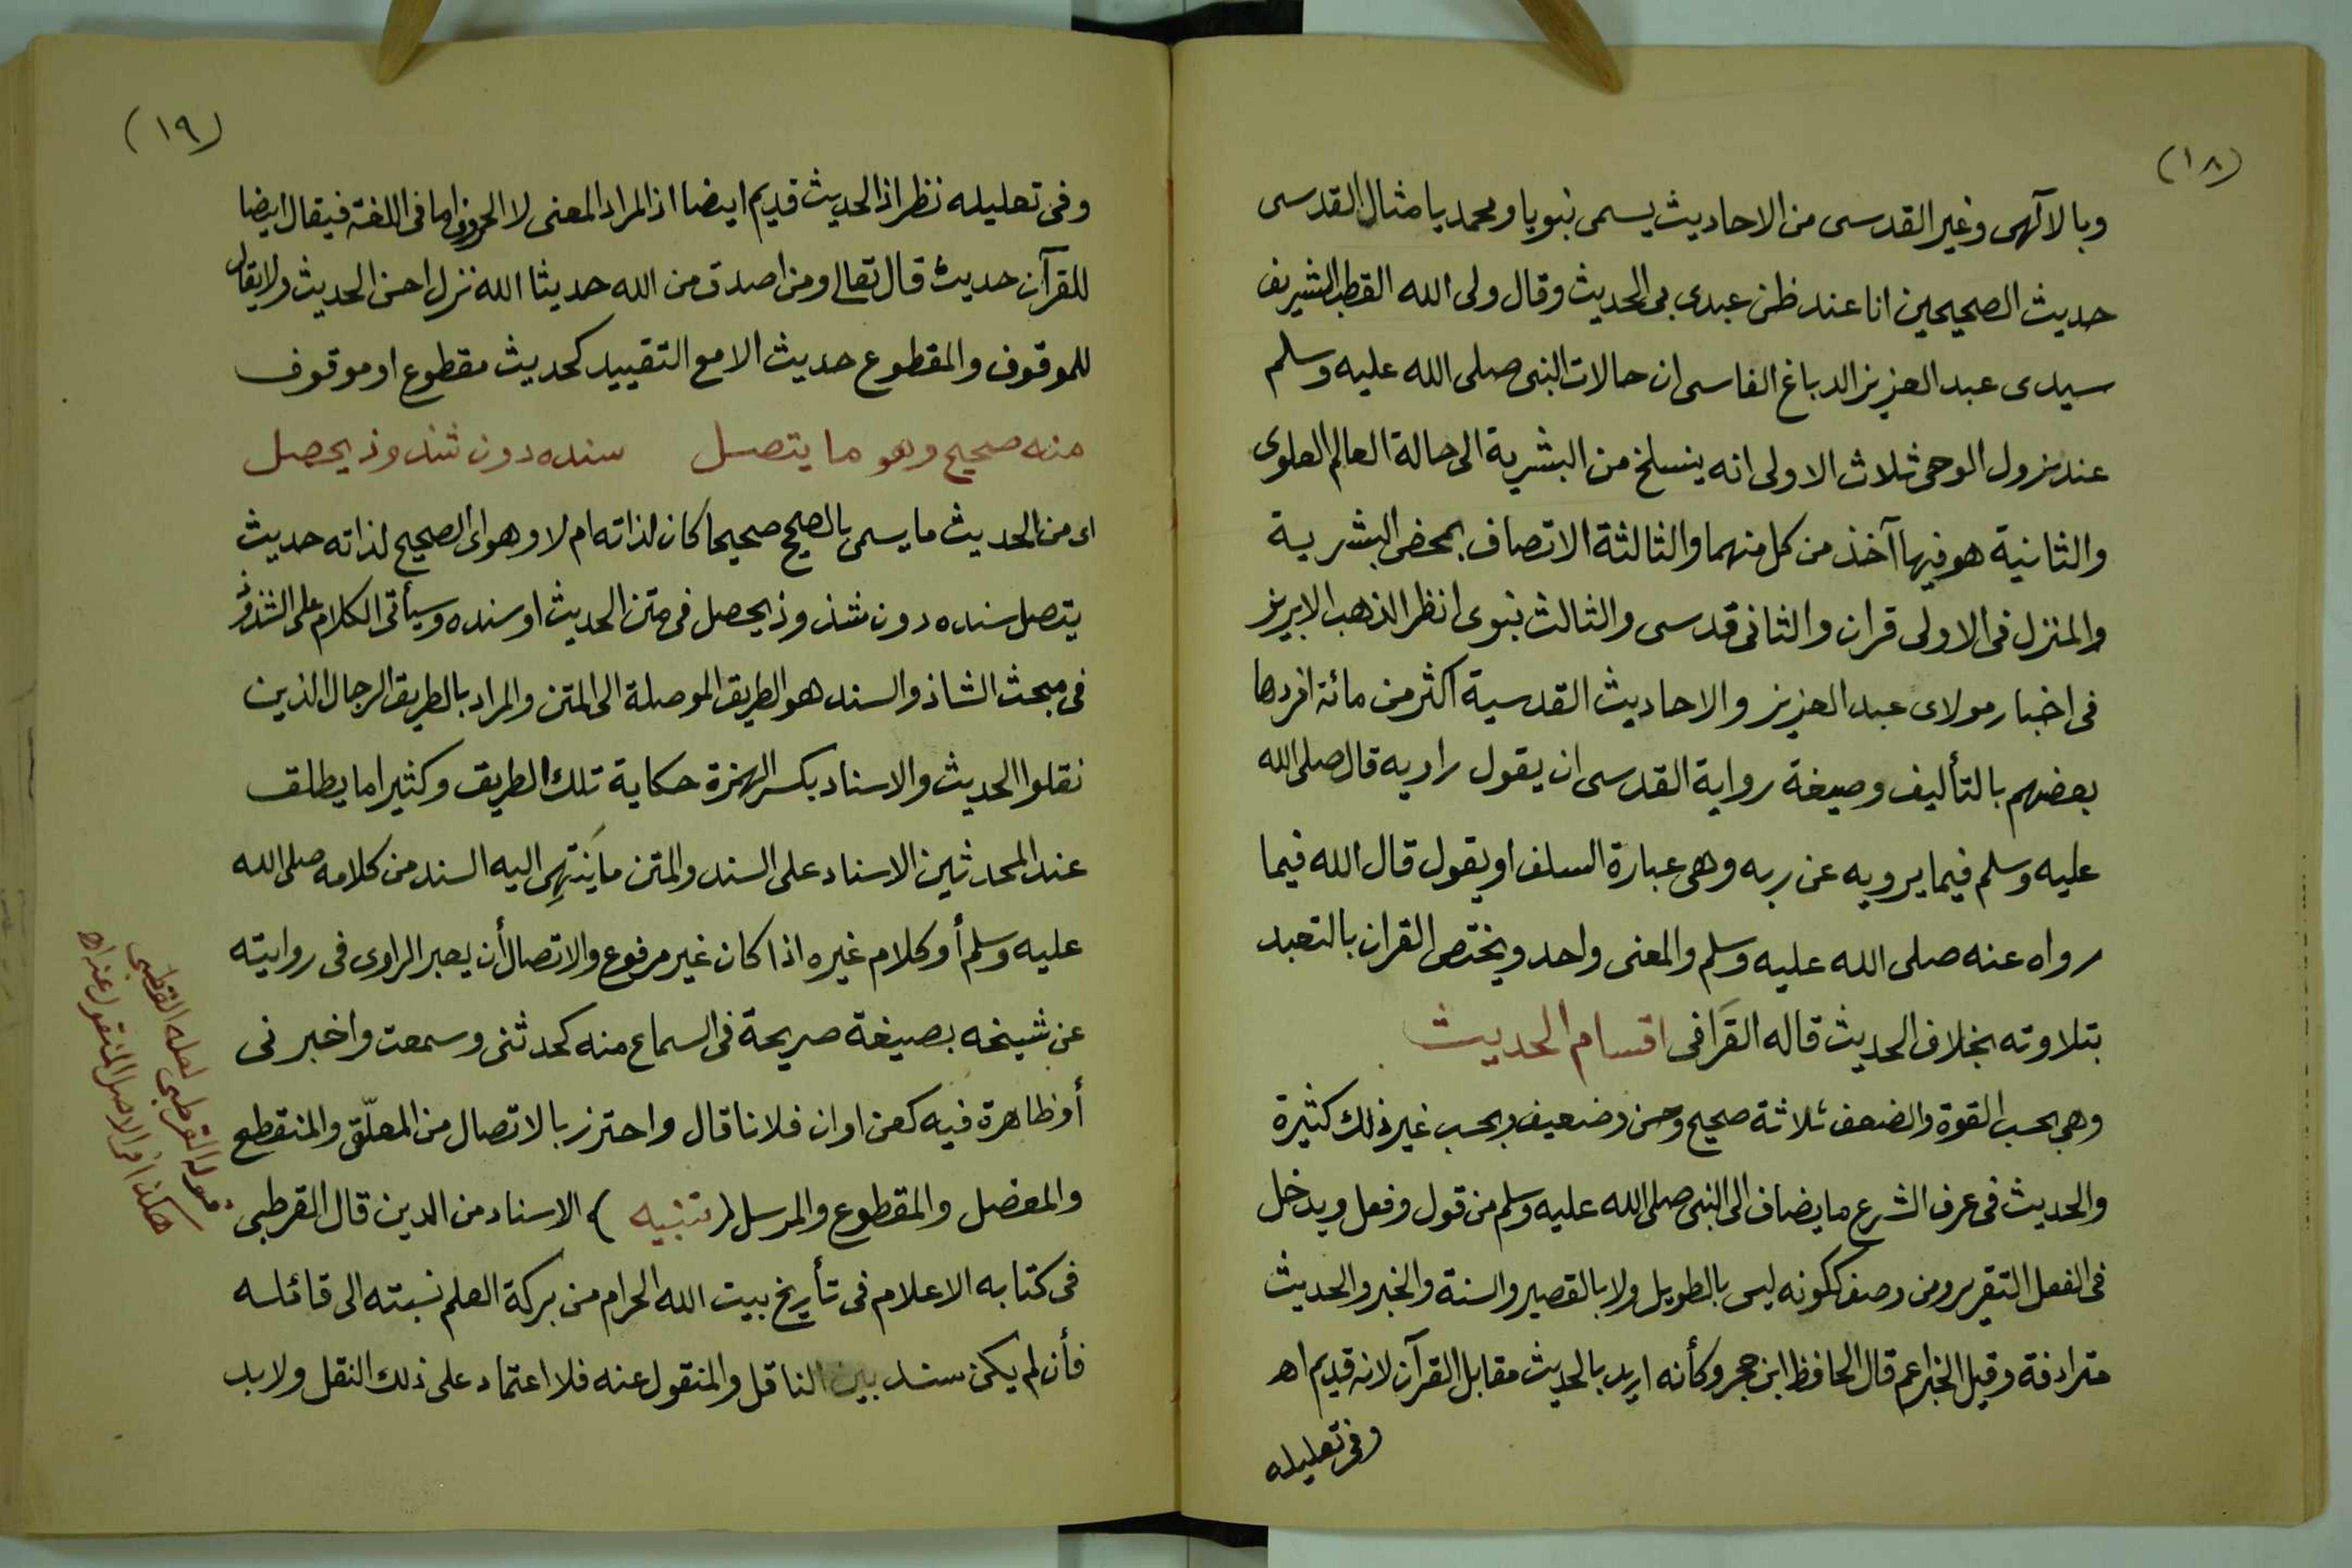 (١٨)
وبالآلهى وغير القدسى من الاحاديث يسمى نبويا ومحمديا مثال القدسى
حديث الصحيحين انا عند ظن عبدى بى الحديث وقال ولى الله القطب الشريف
سيدى عبد العزيز الدباغ الفاسى ان حالات النبى صلى الله عليه وسلم
عند نزول الوحى ثلاث الاولى انه ينسلخ من البشرية الى حالة العالم العلوى
والثانية هو فيها آخذ من كل منهما والثالثة الاتصاف بمحض البشرية
والمنزل فى الاولى قران والثانى قدسى والثالث نبوى انظر الذهب الابريز
فى اخبار مولاى عبد العزيز والاحاديث القدسية اكثر من مائة افردها
بعضهم بالتأليف وصيغة رواية القدسى ان يقول راويه قال صلى الله
عليه وسلم فيما يرويه عن ربه وهى عبارة السلف او يقول قال الله فيما
رواه عنه صلى الله عليه وسلم والمعنى واحد ويختص القران بالتعبد
بتلاوته بخلاف الحديث قاله القَرَافى اقسام الحديث
وهى بحسب القوة والضعف ثلاثة صحيح وحسن وضعيف وبحسب غير ذلك كثيرة
والحديث فى عرف الشرع ما يضاف الى النبى صلى الله عليه وسلم من قول وفعل ويدخل
فى الفعل التقرير ومن وصف ككونه ليس بالطويل ولا بالقصير والسنة والخبر والحديث
مترادفة وقيل الخبر اعم قال الحافظ ابن حجر وكأنه اريد بالحديث مقابل القرآن لانه قديم اهـ
وفى تعليله
(١٩)
وفى تعليله نظر اذ الحديث قديم ايضا اذ المراد المعنى لا الحروف اما فى اللغة فيقال ايضا
للقرآن حديث قال تعالى ومن اصدق من الله حديثا الله نزل احسن الحديث ولا يقال
للموقوف والمقطوع حديث الا مع التقييد كحديث مقطوع او موقوف
منه صحيح وهو ما يتصل سنده دون شذوذ يحصل
اى من الحديث ما يسمى بالصحيح صحيحا كان لذاته ام لا وهو اى الصحيح لذاته حديث
يتصل سنده دون شذوذ يحصل فى متن الحديث او سنده وسيأتى الكلام على الشذوذ
فى مبحث الشاذ والسند هو الطريق الموصلة الى المتن والمراد بالطريق الرجال الذين
نقلوا الحديث والاسناد بكسر الهمزة حكاية تلك الطريق وكثيرا ما يطلق
عند المحدثين الاسناد على السند والمتن ما يَنتهِى اليه السند من كلامه صلى الله
عليه وسلم أو كلام غيره اذا كان غير مرفوع والاتصال أن يعبر الراوى فى روايته
عن شيخه بصيغة صريحة فى السماع منه كحدثنى وسمعت واخبرنى
أو ظاهرة فيه كعن او ان فلانا قال واحترز بالاتصال من المعلّق والمنقطع
والمعضل والمقطوع والمرسل (تنبيه) الاسناد من الدين قال القرطبى
فى كتابه الاعلام فى تأريخ بيت الله الحرام من بركة العلم نسبته الى قائله
فأن لم يكن سند بين الناقل والمنقول عنه فلا اعتماد على ذلك النقل ولا بد
قوله القرطبى لعله القطبى
هكذا فى الاصل المنقول عنه اهـ